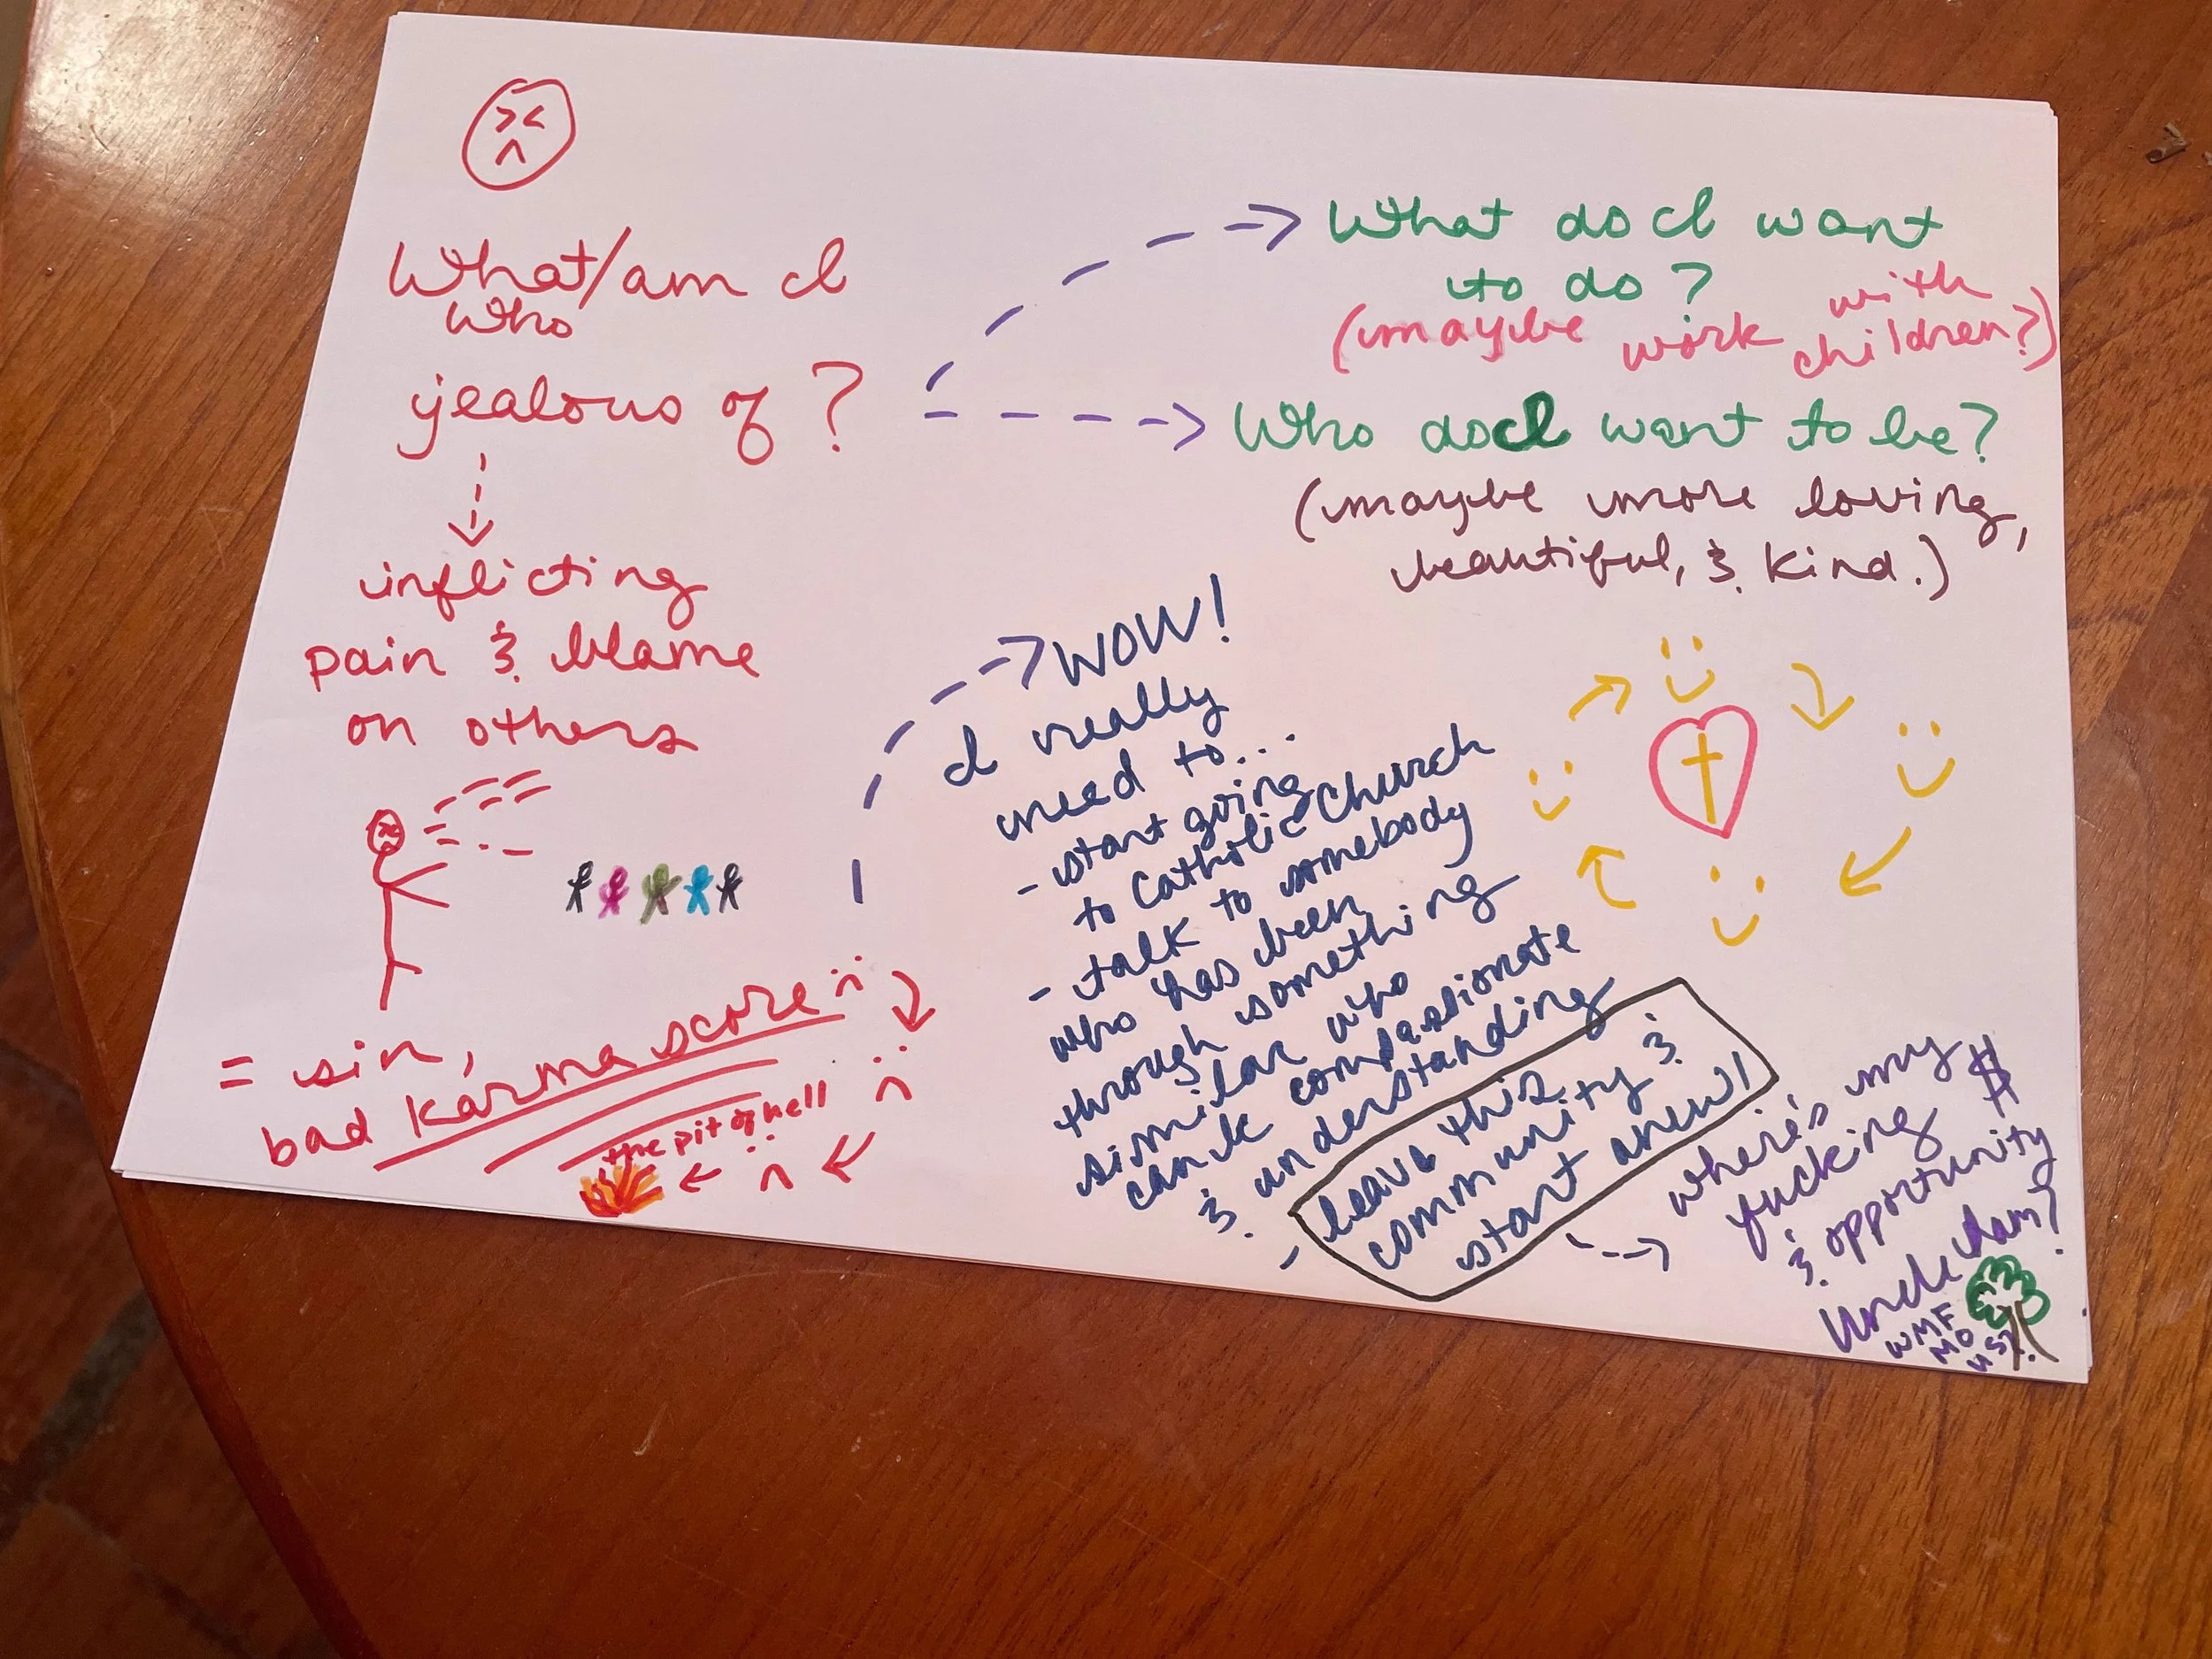 What/am I
who
jealous of?
inflicting
pain & blame
on others
= sin,
bad karma score
the pit of hell
What do I want
to do?
(maybe work with
children?)
Who do I want to be?
(maybe more loving,
beautiful, & kind.)
WOW!
I really
need to...
- start going
to Catholic Church
- talk to somebody
who has been
through something
similar who
can be compassionate
& understanding
- leave this
community &
start anew!
where's my
fucking $
& opportunity
Uncle Sam?
WMF
MO
US?